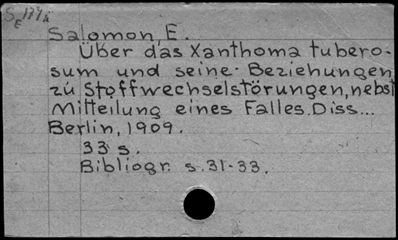 Salomon, E.
Über das Xanthoma tubero-
sum und seine Beziehungen
zu Stoffwechselstörungen, nebst
Mitteilung eines Falles. Diss...
Berlin, 1909.
33 s.
Bibliogr. s. 31-33.